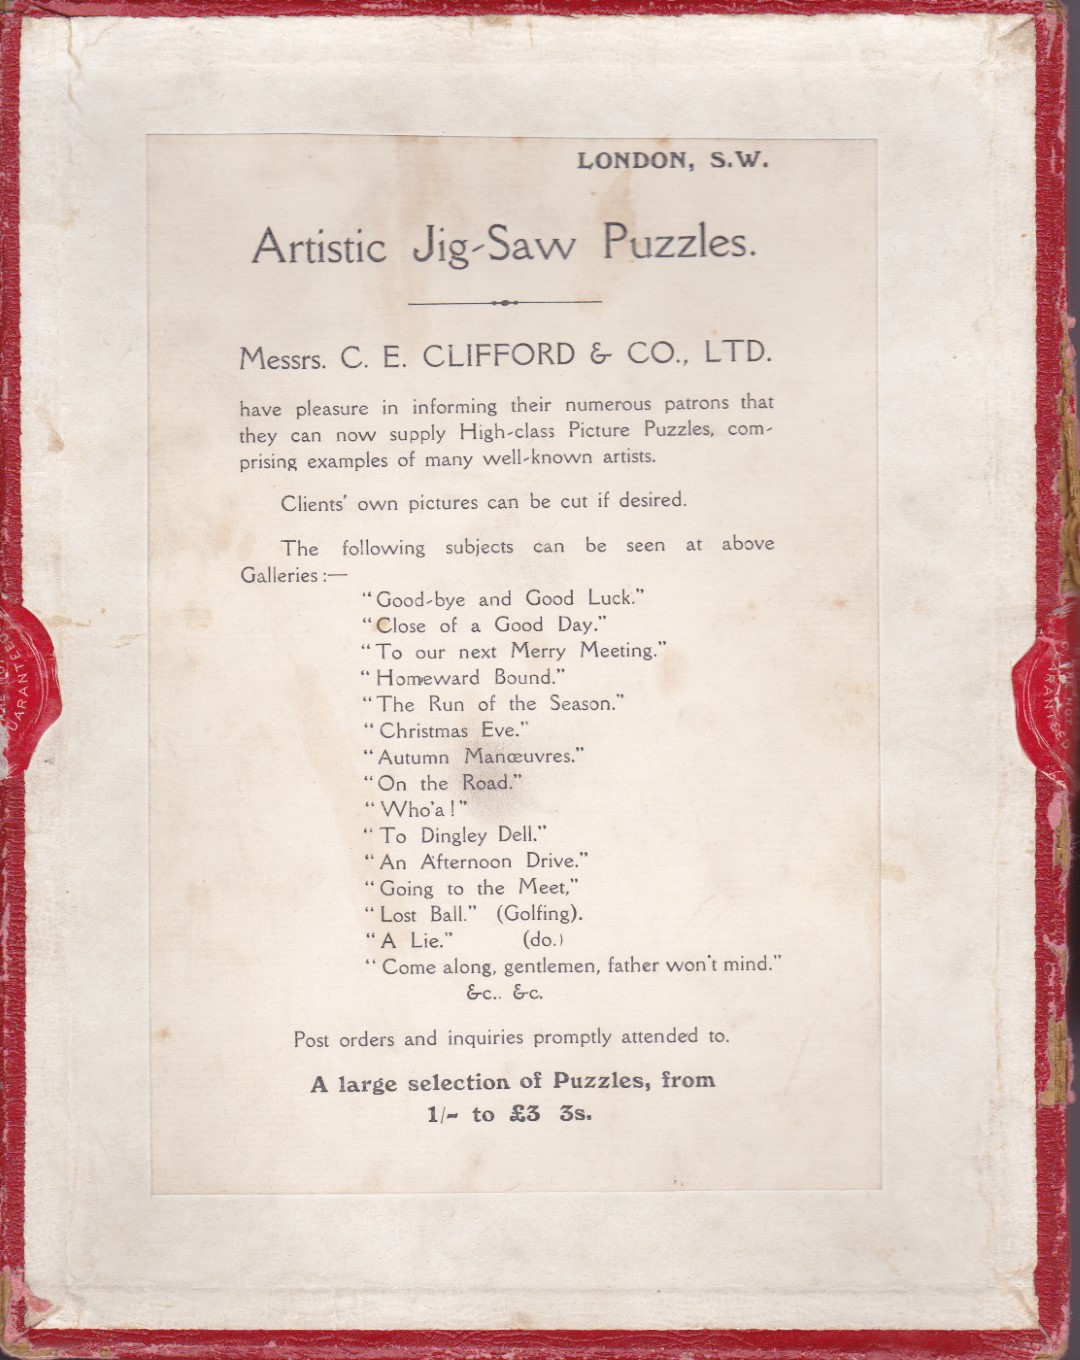 LONDON, S.W.
Artistic Jig-Saw Puzzles.
Messrs. C. E. CLIFFORD & CO., LTD.
have pleasure in informing their numerous patrons that
they can now supply High-class Picture Puzzles, com-
prising examples of many well-known artists.
Clients' own pictures can be cut if desired.
The following subjects can be seen at above
Galleries:—
"Good-bye and Good Luck."
"Close of a Good Day."
"To our next Merry Meeting."
"Homeward Bound."
"The Run of the Season."
"Christmas Eve."
"Autumn Manœuvres."
"On the Road."
"Who'a!"
"To Dingley Dell."
"An Afternoon Drive."
"Going to the Meet,"
"Lost Ball." (Golfing).
"A Lie." (do.)
"Come along, gentlemen, father won't mind."
&c.. &c.
Post orders and inquiries promptly attended to.
A large selection of Puzzles, from
1/- to £3 3s.